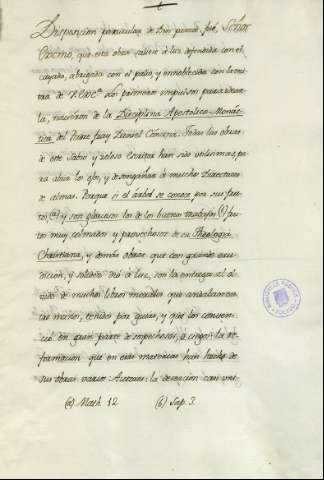 Disposicion particular de Dios parece, fué, Señor
Excmo, que esta obra saliese á luz defendida con el
cayado, abrigada con el palio, y ennoblecida con la mi-
tra de V. Exc.ª Los primeros impulsos para idear-
la, nacieron de la Disciplina Apostolico-Monas-
tica del Mtro. fray Daniel Concina. Todas las obras
de este Sabio y zeloso escritor han sido utilisimas, pa-
ra abrir los ojos, y desengañar á muchos Directores
de almas. Porque si el árbol se conoce por sus fru-
tos (a) y son gloriosos los de los buenos trabajos (b) fru-
tos muy colmados y provechosos de su Theologia
Christiana, y demás obras que con grande eru-
dicion, y solidez dió á luz, son la entrega al ol-
vido de muchos libros morales que
tenidos por guias, y que los conven-
ció en gran parte de sospechosos, ó ciegos: la re-
formacion que en estas materias han hecho de
sus obras varios Autores: la desercion casi uni-
(a) Math. 12 (b) Sap. 3.